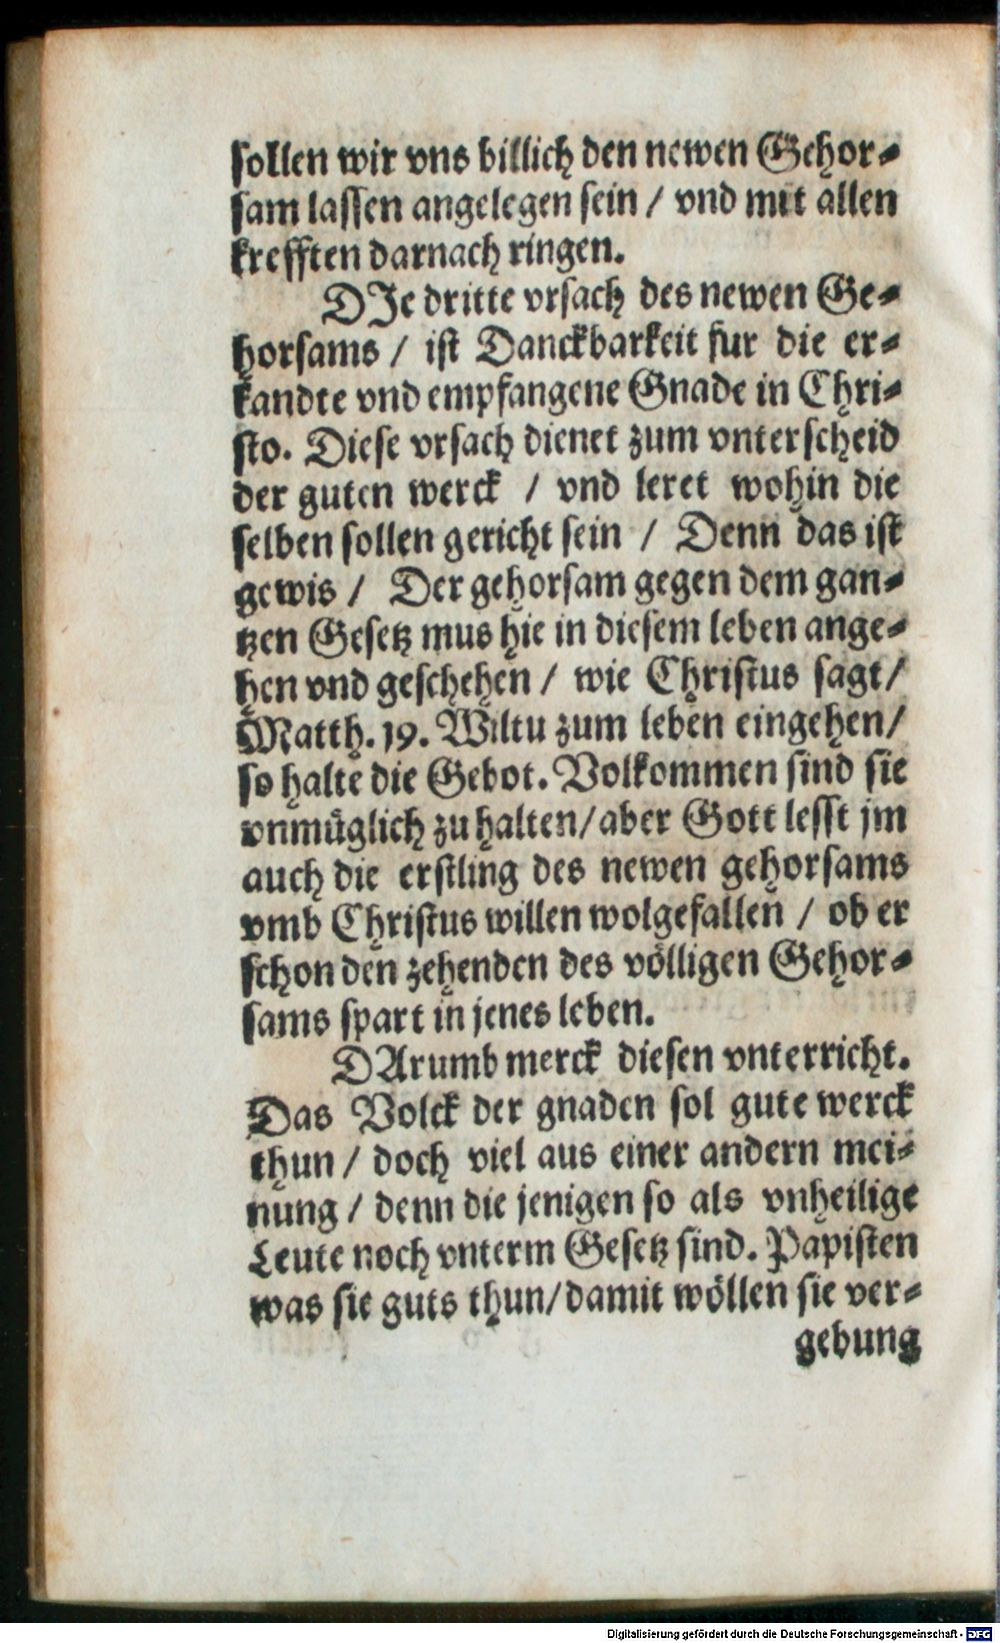 sollen wir vns billich den newen Gehor-
sam lassen angelegen sein / vnd mit allen
krefften darnach ringen.
DJe dritte vrsach des newen Ge-
horsams / ist Danckbarkeit fur die er-
kandte vnd empfangene Gnade in Chri-
sto. Diese vrsach dienet zum vnterscheid
der guten werck / vnd leret wohin die
selben sollen gericht sein / Denn das ist
gewis / Der gehorsam gegen dem gan-
tzen Gesetz mus hie in diesem leben ange-
hen vnd geschehen / wie Christus sagt /
Matth. 19. Wiltu zum leben eingehen /
so halte die Gebot. Volkommen sind sie
vnmüglich zu halten / aber Gott lesst jm
auch die erstling des newen gehorsams
vmb Christus willen wolgefallen / ob er
schon den zehenden des völligen Gehor-
sams spart in jenes leben.
DArumb merck diesen vnterricht.
Das Volck der gnaden sol gute werck
thun / doch viel aus einer andern mei-
nung / denn die jenigen so als vnheilige
Leute noch vnterm Gesetz sind. Papisten
was sie guts thun / damit wöllen sie ver-
gebung
Digitalisierung gefördert durch die Deutsche Forschungsgemeinschaft - DFG